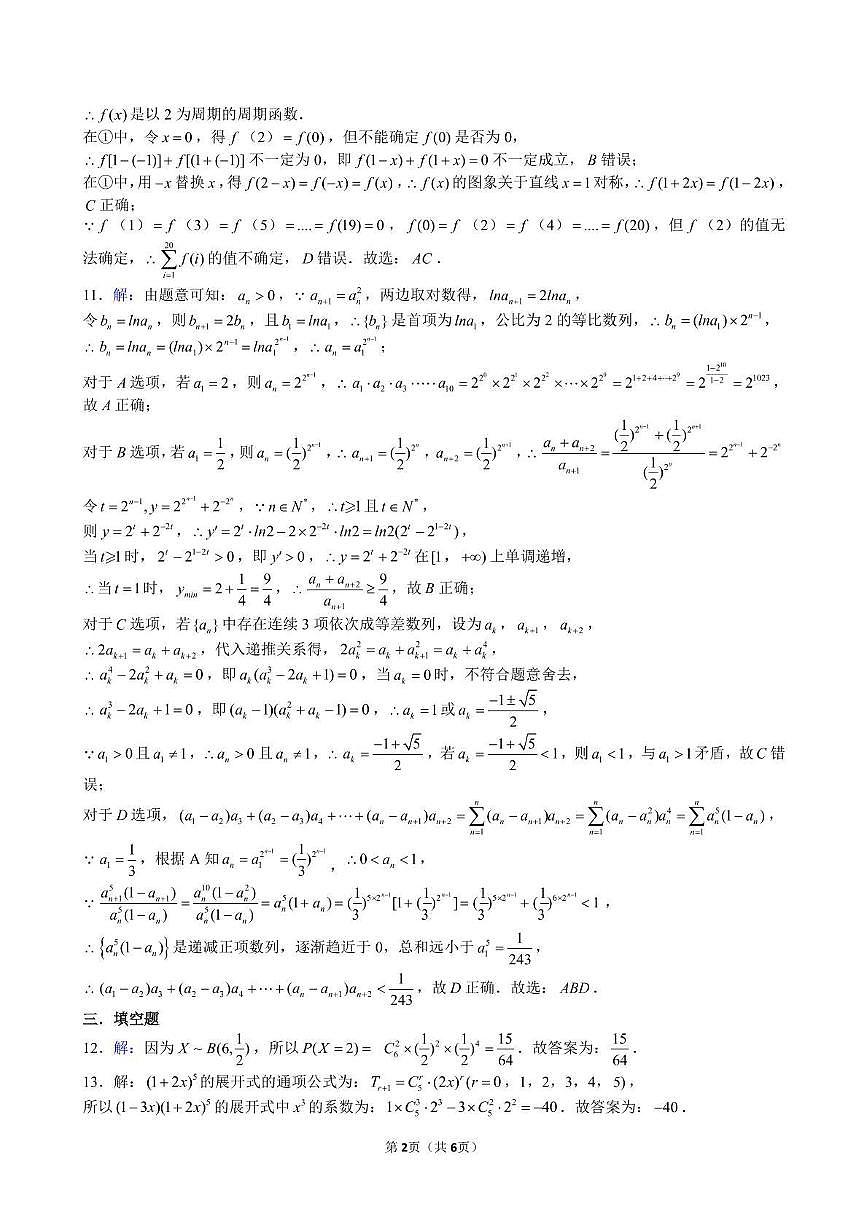 ∴ f(x)是以 2 为周期的周期函数.
在①中，令 x = 0，得 f （2） = f(0)，但不能确定 f(0) 是否为 0，
∴ f[1-(-1)] + f[(1+(-1)] 不一定为 0，即 f(1-x) + f(1+x) = 0 不一定成立， B 错误；
在①中，用 -x 替换 x，得 f(2-x) = f(-x) = f(x)，∴ f(x) 的图象关于直线 x = 1 对称，∴ f(1+2x) = f(1-2x)，
C 正确；
∵ f （1） = f （3） = f （5） = .... = f(19) = 0， f(0) = f （2） = f （4） = .... = f(20)，但 f （2）的值无
法确定，∴ \sum_{i=1}^{20} f(i) 的值不确定， D 错误．故选： AC．
11．解：由题意可知： a_n > 0，∵ a_{n+1} = a_n^2，两边取对数得， lna_{n+1} = 2lna_n，
令 b_n = lna_n，则 b_{n+1} = 2b_n，且 b_1 = lna_1，∴ {b_n} 是首项为 lna_1，公比为 2 的等比数列，∴ b_n = (lna_1) × 2^{n-1}，
∴ b_n = lna_n = (lna_1) × 2^{n-1} = lna_1^{2^{n-1}}，∴ a_n = a_1^{2^{n-1}}；
对于 A 选项，若 a_1 = 2，则 a_n = 2^{2^{n-1}}，∴ a_1 · a_2 · a_3 ····· a_{10} = 2^{2^0} × 2^{2^1} × 2^{2^2} × ··· × 2^{2^9} = 2^{1+2+4+···+2^9} = 2^{\frac{1-2^{10}}{1-2}} = 2^{1023}，
故 A 正确；
对于 B 选项，若 a_1 = \frac{1}{2}，则 a_n = (\frac{1}{2})^{2^{n-1}}，∴ a_{n+1} = (\frac{1}{2})^{2^n}，a_{n+2} = (\frac{1}{2})^{2^{n+1}}，∴ \frac{a_n + a_{n+2}}{a_{n+1}} = \frac{(\frac{1}{2})^{2^{n-1}} + (\frac{1}{2})^{2^{n+1}}}{(\frac{1}{2})^{2^n}} = 2^{2^{n-1}} + 2^{-2^n}
令 t = 2^{n-1}, y = 2^{2^{n-1}} + 2^{-2^n}，∵ n ∈ N^*，∴ t⩾1 且 t ∈ N^*，
则 y = 2^t + 2^{-2t}，∴ y' = 2^t · ln2 - 2 × 2^{-2t} · ln2 = ln2(2^t - 2^{1-2t})，
当 t⩾1 时， 2^t - 2^{1-2t} > 0，即 y' > 0，∴ y = 2^t + 2^{-2t} 在[1， +∞) 上单调递增，
∴当 t = 1 时， y_{min} = 2 + \frac{1}{4} = \frac{9}{4}，∴ \frac{a_n + a_{n+2}}{a_{n+1}} ≥ \frac{9}{4}，故 B 正确；
对于 C 选项，若 {a_n} 中存在连续 3 项依次成等差数列，设为 a_k， a_{k+1}， a_{k+2}，
∴ 2a_{k+1} = a_k + a_{k+2}，代入递推关系得， 2a_k^2 = a_k + a_{k+1}^2 = a_k + a_k^4，
∴ a_k^4 - 2a_k^2 + a_k = 0，即 a_k(a_k^3 - 2a_k + 1) = 0，当 a_k = 0 时，不符合题意舍去，
∴ a_k^3 - 2a_k + 1 = 0，即 (a_k - 1)(a_k^2 + a_k - 1) = 0，∴ a_k = 1 或 a_k = \frac{-1±\sqrt{5}}{2}，
∵ a_1 > 0 且 a_1 ≠ 1，∴ a_n > 0 且 a_n ≠ 1，∴ a_k = \frac{-1+\sqrt{5}}{2}，若 a_k = \frac{-1+\sqrt{5}}{2} < 1，则 a_1 < 1，与 a_1 > 1 矛盾，故 C 错
误；
对于 D 选项， (a_1 - a_2)a_3 + (a_2 - a_3)a_4 + ··· + (a_n - a_{n+1})a_{n+2} = \sum_{n=1}^{n} (a_n - a_{n+1})a_{n+2} = \sum_{n=1}^{n} (a_n - a_n^2)a_n^4 = \sum_{n=1}^{n} a_n^5(1 - a_n)，
∵ a_1 = \frac{1}{3}，根据 A 知 a_n = a_1^{2^{n-1}} = (\frac{1}{3})^{2^{n-1}}，∴ 0 < a_n < 1，
∵ \frac{a_{n+1}^5(1 - a_{n+1})}{a_n^5(1 - a_n)} = \frac{a_n^{10}(1 - a_n^2)}{a_n^5(1 - a_n)} = a_n^5(1 + a_n) = (\frac{1}{3})^{5×2^{n-1}}[1 + (\frac{1}{3})^{2^{n-1}}] = (\frac{1}{3})^{5×2^{n-1}} + (\frac{1}{3})^{6×2^{n-1}} < 1，
∴ {a_n^5(1 - a_n)} 是递减正项数列，逐渐趋近于 0，总和远小于 a_1^5 = \frac{1}{243}，
∴ (a_1 - a_2)a_3 + (a_2 - a_3)a_4 + ··· + (a_n - a_{n+1})a_{n+2} < \frac{1}{243}，故 D 正确．故选： ABD．
三．填空题
12．解：因为 X ~ B(6, \frac{1}{2})，所以 P(X = 2) = C_6^2 × (\frac{1}{2})^2 × (\frac{1}{2})^4 = \frac{15}{64}．故答案为： \frac{15}{64}．
13．解： (1+2x)^5 的展开式的通项公式为： T_{r+1} = C_5^r · (2x)^r (r = 0，1，2，3，4， 5)，
所以 (1-3x)(1+2x)^5 的展开式中 x^3 的系数为： 1×C_5^3 · 2^3 - 3×C_5^2 · 2^2 = -40．故答案为： -40．
第 2页（共 6页）